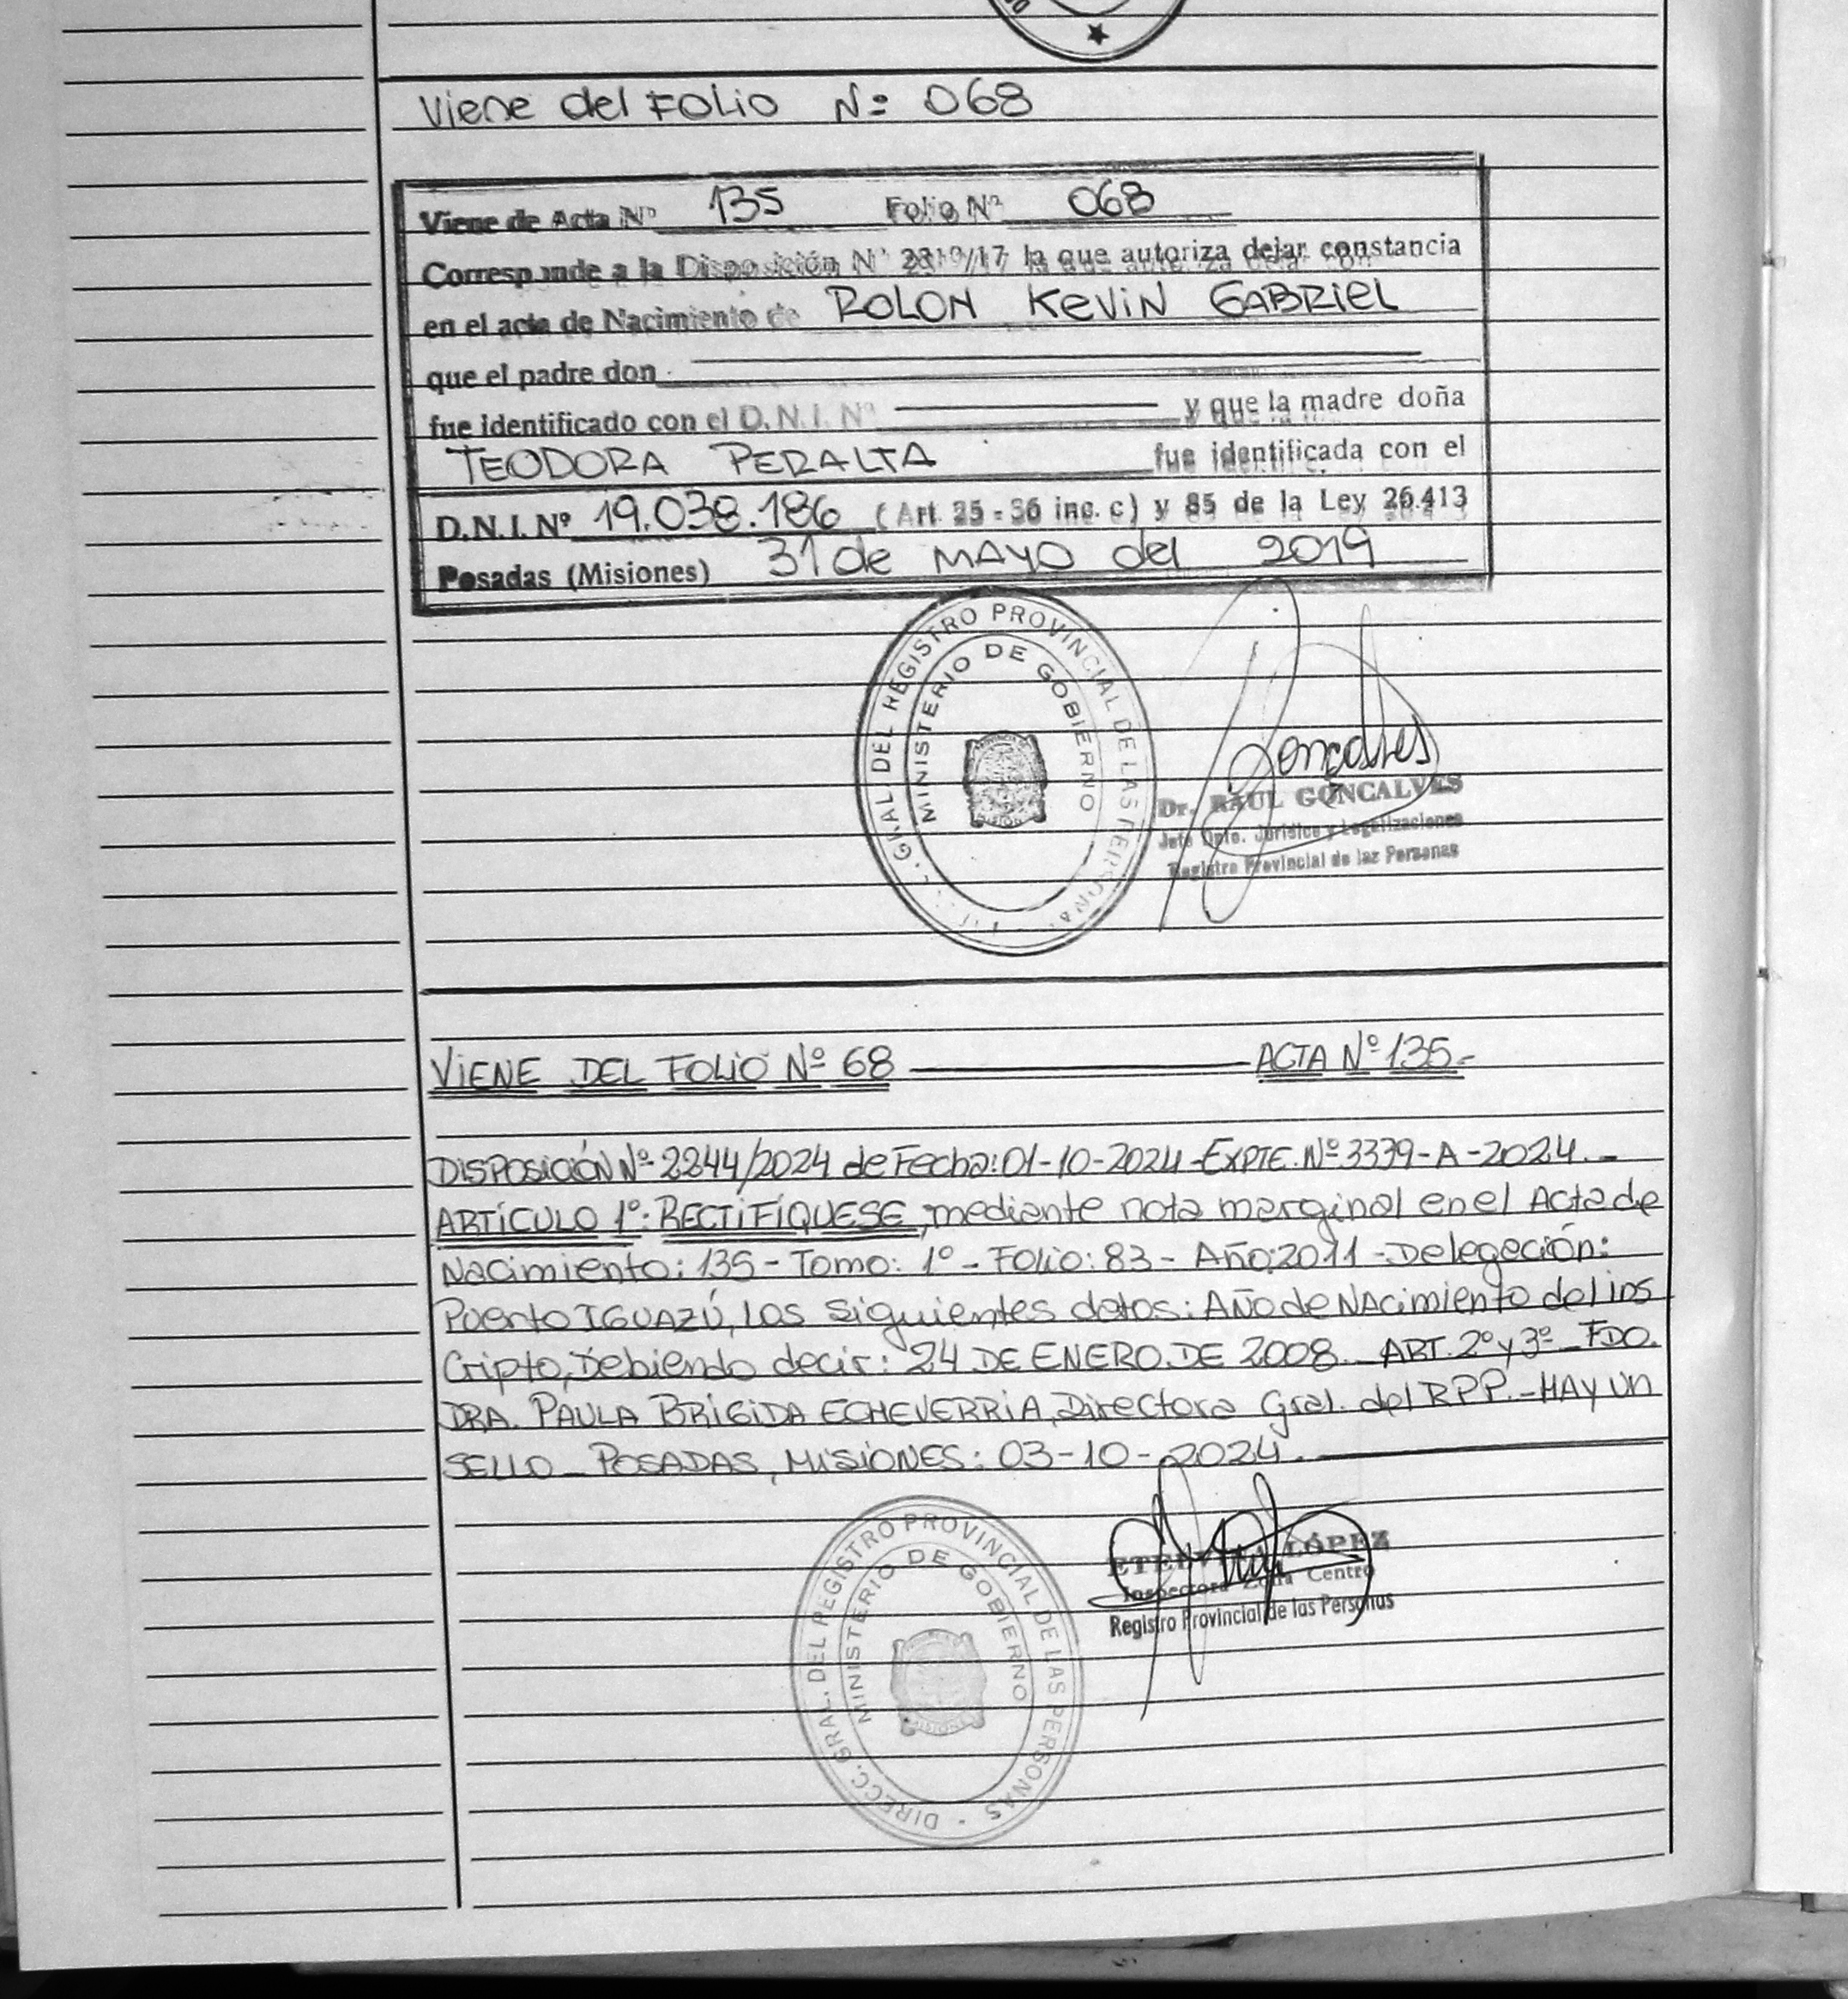 Viene del FOLIO Nº 068
Viene de Acta Nº 135 Folio Nº 068
Corresponde a la Disposición Nº 2819/17 la que autoriza dejar constancia
en el acta de Nacimiento de ROLON KEVIN GABRIEL
que el padre don
fue identificado con el D.N.I. Nº y que la madre doña
TEODORA PERALTA fue identificada con el
D.N.I. Nº 19.038.186 (Art. 25 - 36 inc. c) y 85 de la Ley 26.413
Posadas (Misiones) 31 de MAYO del 2019
GRAL DEL REGISTRO PROVINCIAL DE LAS PERSONAS
MINISTERIO DE GOBIERNO
Goncalves
Dr. RAUL GONCALVES
Jefe Dpto. Jurídico y Legalizaciones
Registro Provincial de las Personas
VIENE DEL FOLIO Nº 68 ACTA Nº 135.-
DISPOSICIÓN Nº 2244/2024 de Fecha: 01-10-2024 - EXPTE. Nº 3339-A-2024.-
ARTÍCULO 1º: RECTIFÍQUESE, mediante nota marginal en el Acta de
Nacimiento: 135 - Tomo: 1º - Folio: 83 - Año: 2011 - Delegación:
Puerto IGUAZÚ, Los siguientes datos: AÑo de NAcimiento del ins
Cripto, Debiendo decir: 24 DE ENERO DE 2008. ART. 2º y 3º - FDO.
DRA. PAULA BRÍGIDA ECHEVERRIA, Directora Gral. del RPP. - HAY UN
SELLO - POSADAS, MISIONES: 03-10-2024.
DIRECC. GRAL. DEL REGISTRO PROVINCIAL DE LAS PERSONAS -
MINISTERIO DE GOBIERNO
ETELVINA LÓPEZ
Inspectora Zona Centro
Registro Provincial de las Personas